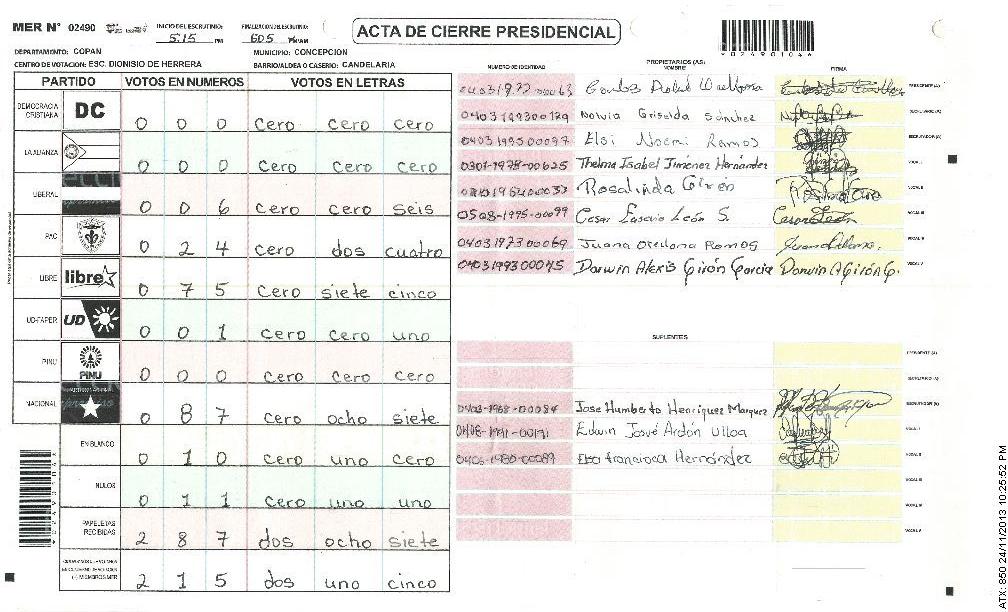 MER N° 02490 INICIO DEL ESCRUTINIO: 5:15 PM FINALIZACIÓN DEL ESCRUTINIO: 605 PM/AM
ACTA DE CIERRE PRESIDENCIAL
*024901046*
DEPARTAMENTO: COPAN MUNICIPIO: CONCEPCION
CENTRO DE VOTACION: ESC. DIONISIO DE HERRERA BARRIO/ALDEA O CASERIO: CANDELARIA
PARTIDO VOTOS EN NUMEROS VOTOS EN LETRAS
DEMOCRACIA CRISTIANA DC 0 0 0 cero cero cero
LA ALIANZA 0 0 0 cero cero cero
LIBERAL 0 0 6 cero cero seis
PAC 0 2 4 cero dos cuatro
LIBRE libre 0 7 5 cero siete cinco
UD-FAPER UD 0 0 1 cero cero uno
PINU PINU 0 0 0 cero cero cero
NACIONAL 0 8 7 cero ocho siete
EN BLANCO 0 1 0 cero uno cero
NULOS 0 1 1 cero uno uno
PAPELETAS RECIBIDAS 2 8 7 dos ocho siete
(-) MIEMBROS MER 2 1 5 dos uno cinco
PROPIETARIOS (AS)
NUMERO DE IDENTIDAD NOMBRE FIRMA
Carlos PRESIDENTE (A)
0403199300129 Nolvia Griselda Sánchez SECRETARIO (A)
0403199500097 Elsi Noemi Ramos ESCRUTADOR (A)
0301-1978-00625 Thelma Isabel Jiménez Hernández VOCAL I
Rosalinda Girón VOCAL II
0508-1995-00099 Cesar León S. VOCAL III
0403197300069 Juana Orellana Ramos VOCAL IV
0403199300045 Darwin Alexis Girón Garcia Darwin A Girón G. VOCAL V
SUPLENTES
PRESIDENTE (A)
SECRETARIO (A)
0403-1968-00084 Jose Humberto Henriquez Marquez ESCRUTADOR (A)
Edwin Josué Ardón Ulloa VOCAL I
Elsa francisca Hernández VOCAL II
VOCAL III
VOCAL IV
VOCAL V
ATX: 850 24/11/2013 10:25:52 PM